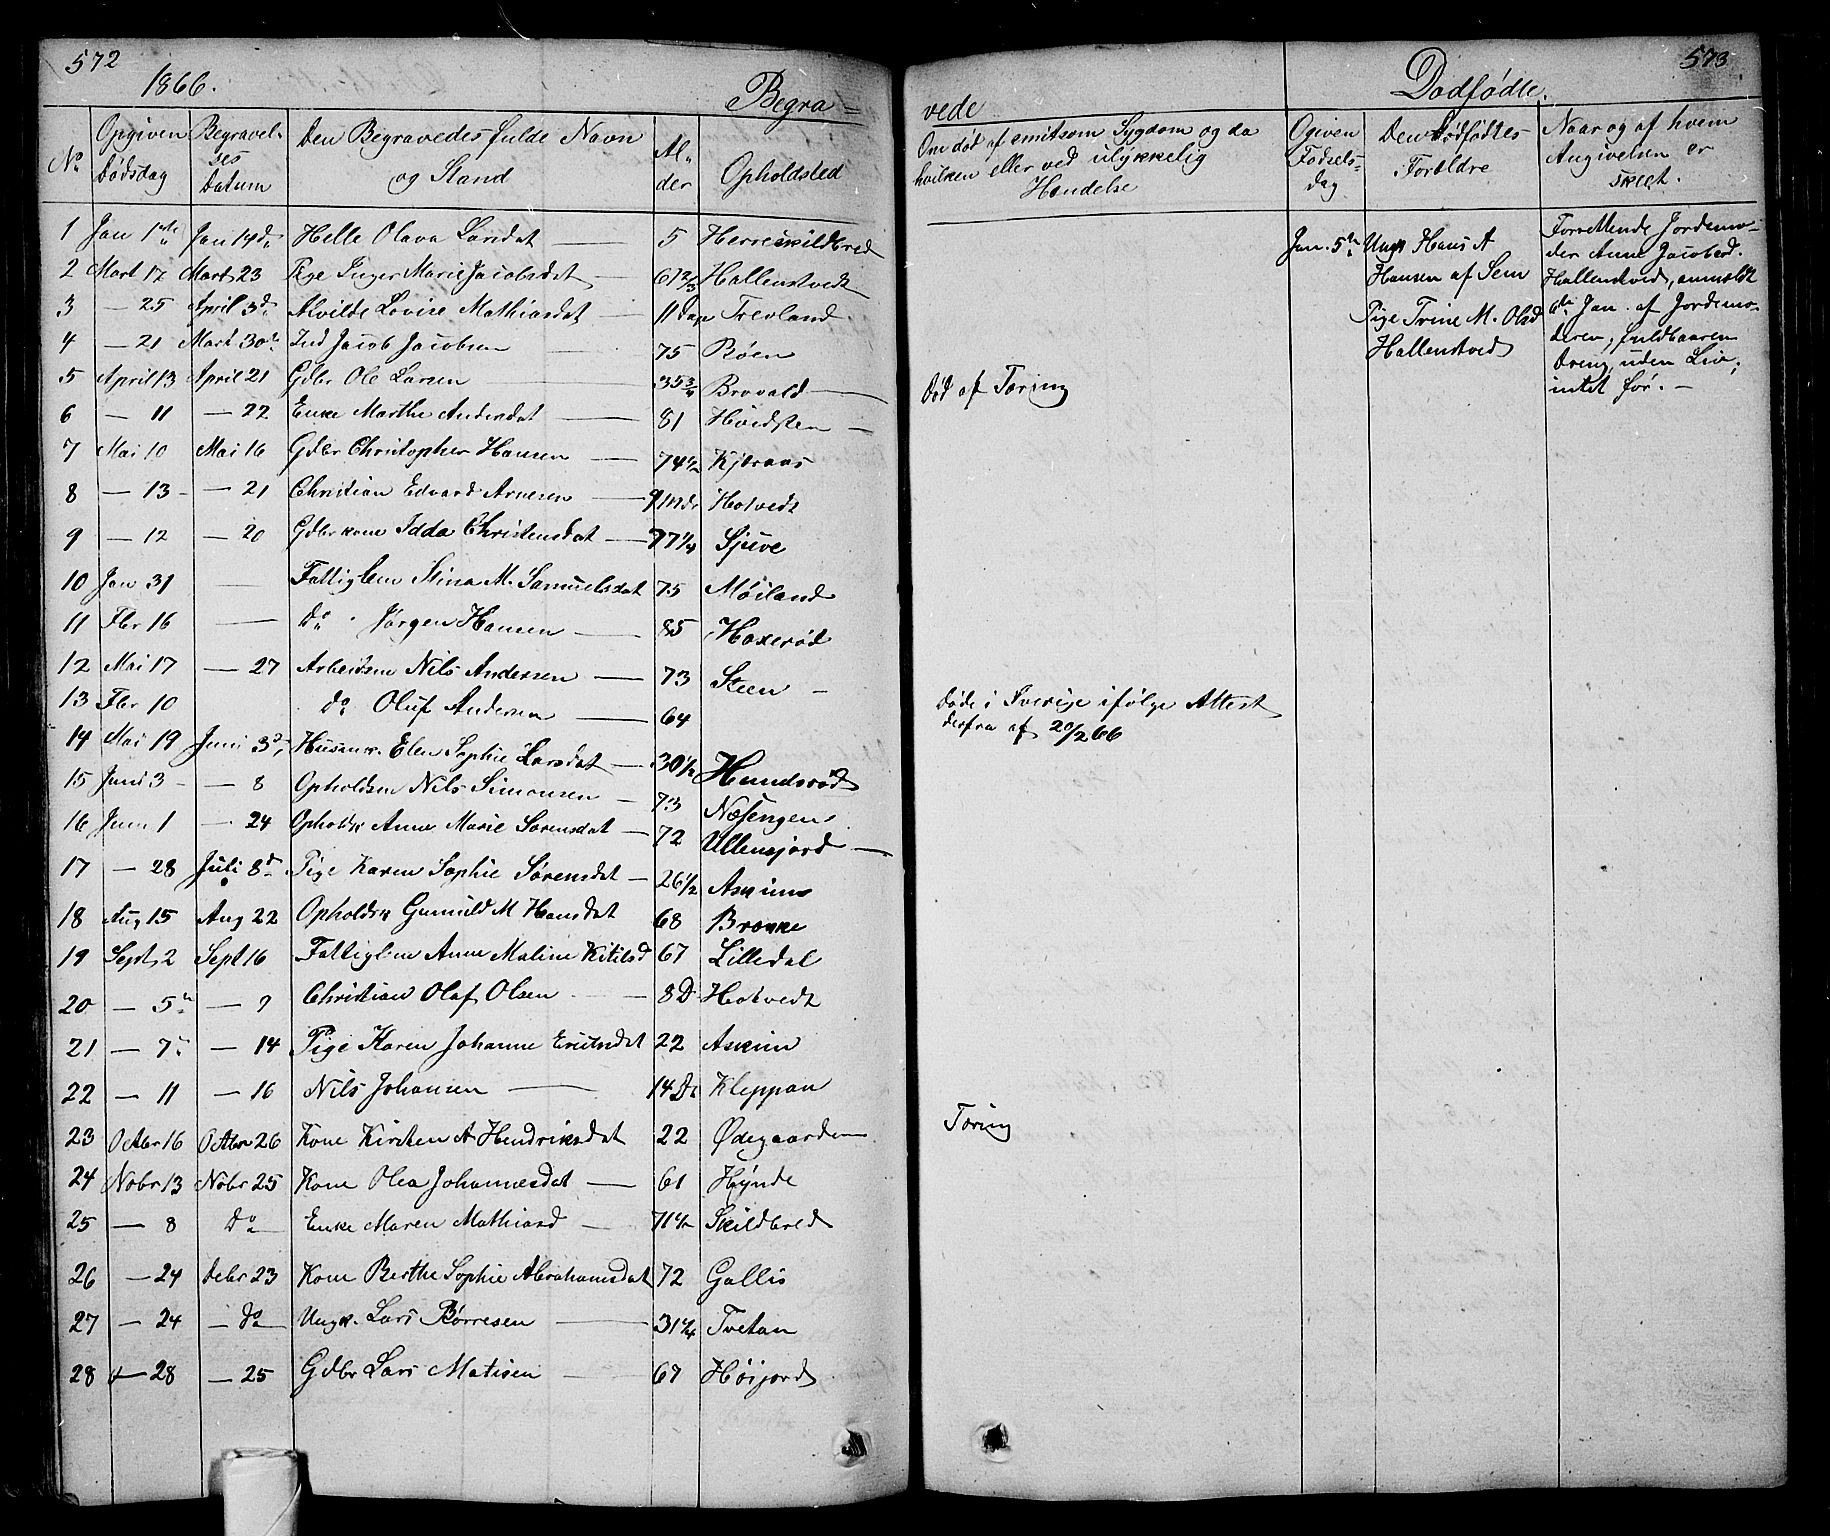 572
1866.
Begra-
No
Opgiven Dødsdag
Begravelses Datum
Den Begravedes fulde Navn og Stand
Alder
Opholdsted
1 Jan 1ste Jan 14de Helle Olava Larsdat — 5 Herreskildbred
2 Mart 17 Mart 23 Pige Inger Marie Jacobsdat 67 2/3 Hallenstvedt
3 — 25 April 3d Alvilde Lovise Mathiasdat 11 Dage Trevland
4 — 21 Mart 30te Ind Jacob Jacobsen 75 Bøen
5 April 13 April 21 Gdbr Ole Larsen 35 3/4 Brovald —
6 — 11 — 22 Enke Marthe Andersdat 81 Hvidsten —
7 Mai 10 Mai 16 Gdbr Christopher Hansen — 74 1/2 Kjeraas
8 — 13 — 21 Christian Edvard Arnesen — 9 Mdr Hotvedt
9 — 12 — 20 Gdbrkone Idda Christensdat — 77 1/4 Sjuve
10 Jan 31 — Fattiglem Stina M. Samuelsdat 75 Møiland
11 Fbr 16 — Do Jørgen Hansen — 85 Haxerød
12 Mai 17 — 27 Arbeidsm Nils Andersen — 73 Steen —
13 Fbr 10 do Oluf Andersen — 64
14 Mai 19 Juni 3d Husmk. Elen Sophie Larsdat — 30 1/2 Hundsrød
15 Juni 3 — 8 Opholdsm Nils Simonsen — 73 Næsengen
16 Juni 1 — 24 Opholdsk Anne Marie Sørensdat — 72 Ullensjord —
17 — 28 Juli 8d Pige Karen Sophie Sørensdat — 26 1/2 Askim
18 Aug 15 Aug 22 Opholdsk Gunuld M Hansdat 68 Brække
19 Sept 2 Sept 16 Fattiglem Anne Maline Kitilsd 67 Lilledal
20 — 5te — 9 Christian Olaf Olsen — 8 D Hotvedt
21 — 7de — 14 Pige Karen Johanne Eriksdat 22 Askim
22 — 11 — 16 Nils Johansen — 14 D Kleppan
23 Octbr 16 Octbr 26 Kone Kirsten A Hendriksdat 22 Ødegaarden
24 Nobr 13 Nobr 25 Kone Olea Johannesdat — 61 Hynde
25 — 8 Do Enke Maren Mathiasd — 71 1/2 Skildbred
26 — 24 Debr 23 Kone Berthe Sophie Abrahamsdat 72 Gallis
27 — 24 — do Ungk. Lars Børresen — 31 1/4 Tvetan
28 — 28 — 25 Gdbr Lars Matisen — 67 Høijord
573
vede
Dødfødte.
Om død af smitsom Sygdom og da
hvilken eller ved ulykkelig
Hendelse
Ogiven Fødselsdag
Den Dødfødtes Foreldre
Naar og af hvem Angivelsen er skeet.
Jan. 5te
Ungk Hans A
Hansen af Sem
Pige Trine M. Olsd
Hallenstved
Forrettende Jordemo-
der Anne Jacobsd.
Hallenstved, anmeldt
6te Jan. af Jordemo-
deren, fuldbaaren
Dreng, uden Liv,
intet for. —
Død af Tæring
Døde i Sverige ifølge Attest
derfra af 20/2 66
Tæring